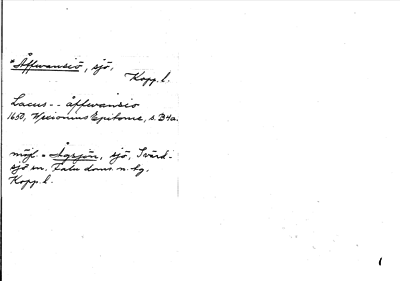 *Åffwansiö, sjö,
Kopp. l.
Lacus - - åffwansio
1650, Wexionius Epitome, s. B4a.
möjl. = Ågsjön, sjö, Svärd-
sjö sn, Falu doms. n. tg.
Kopp. l.
1